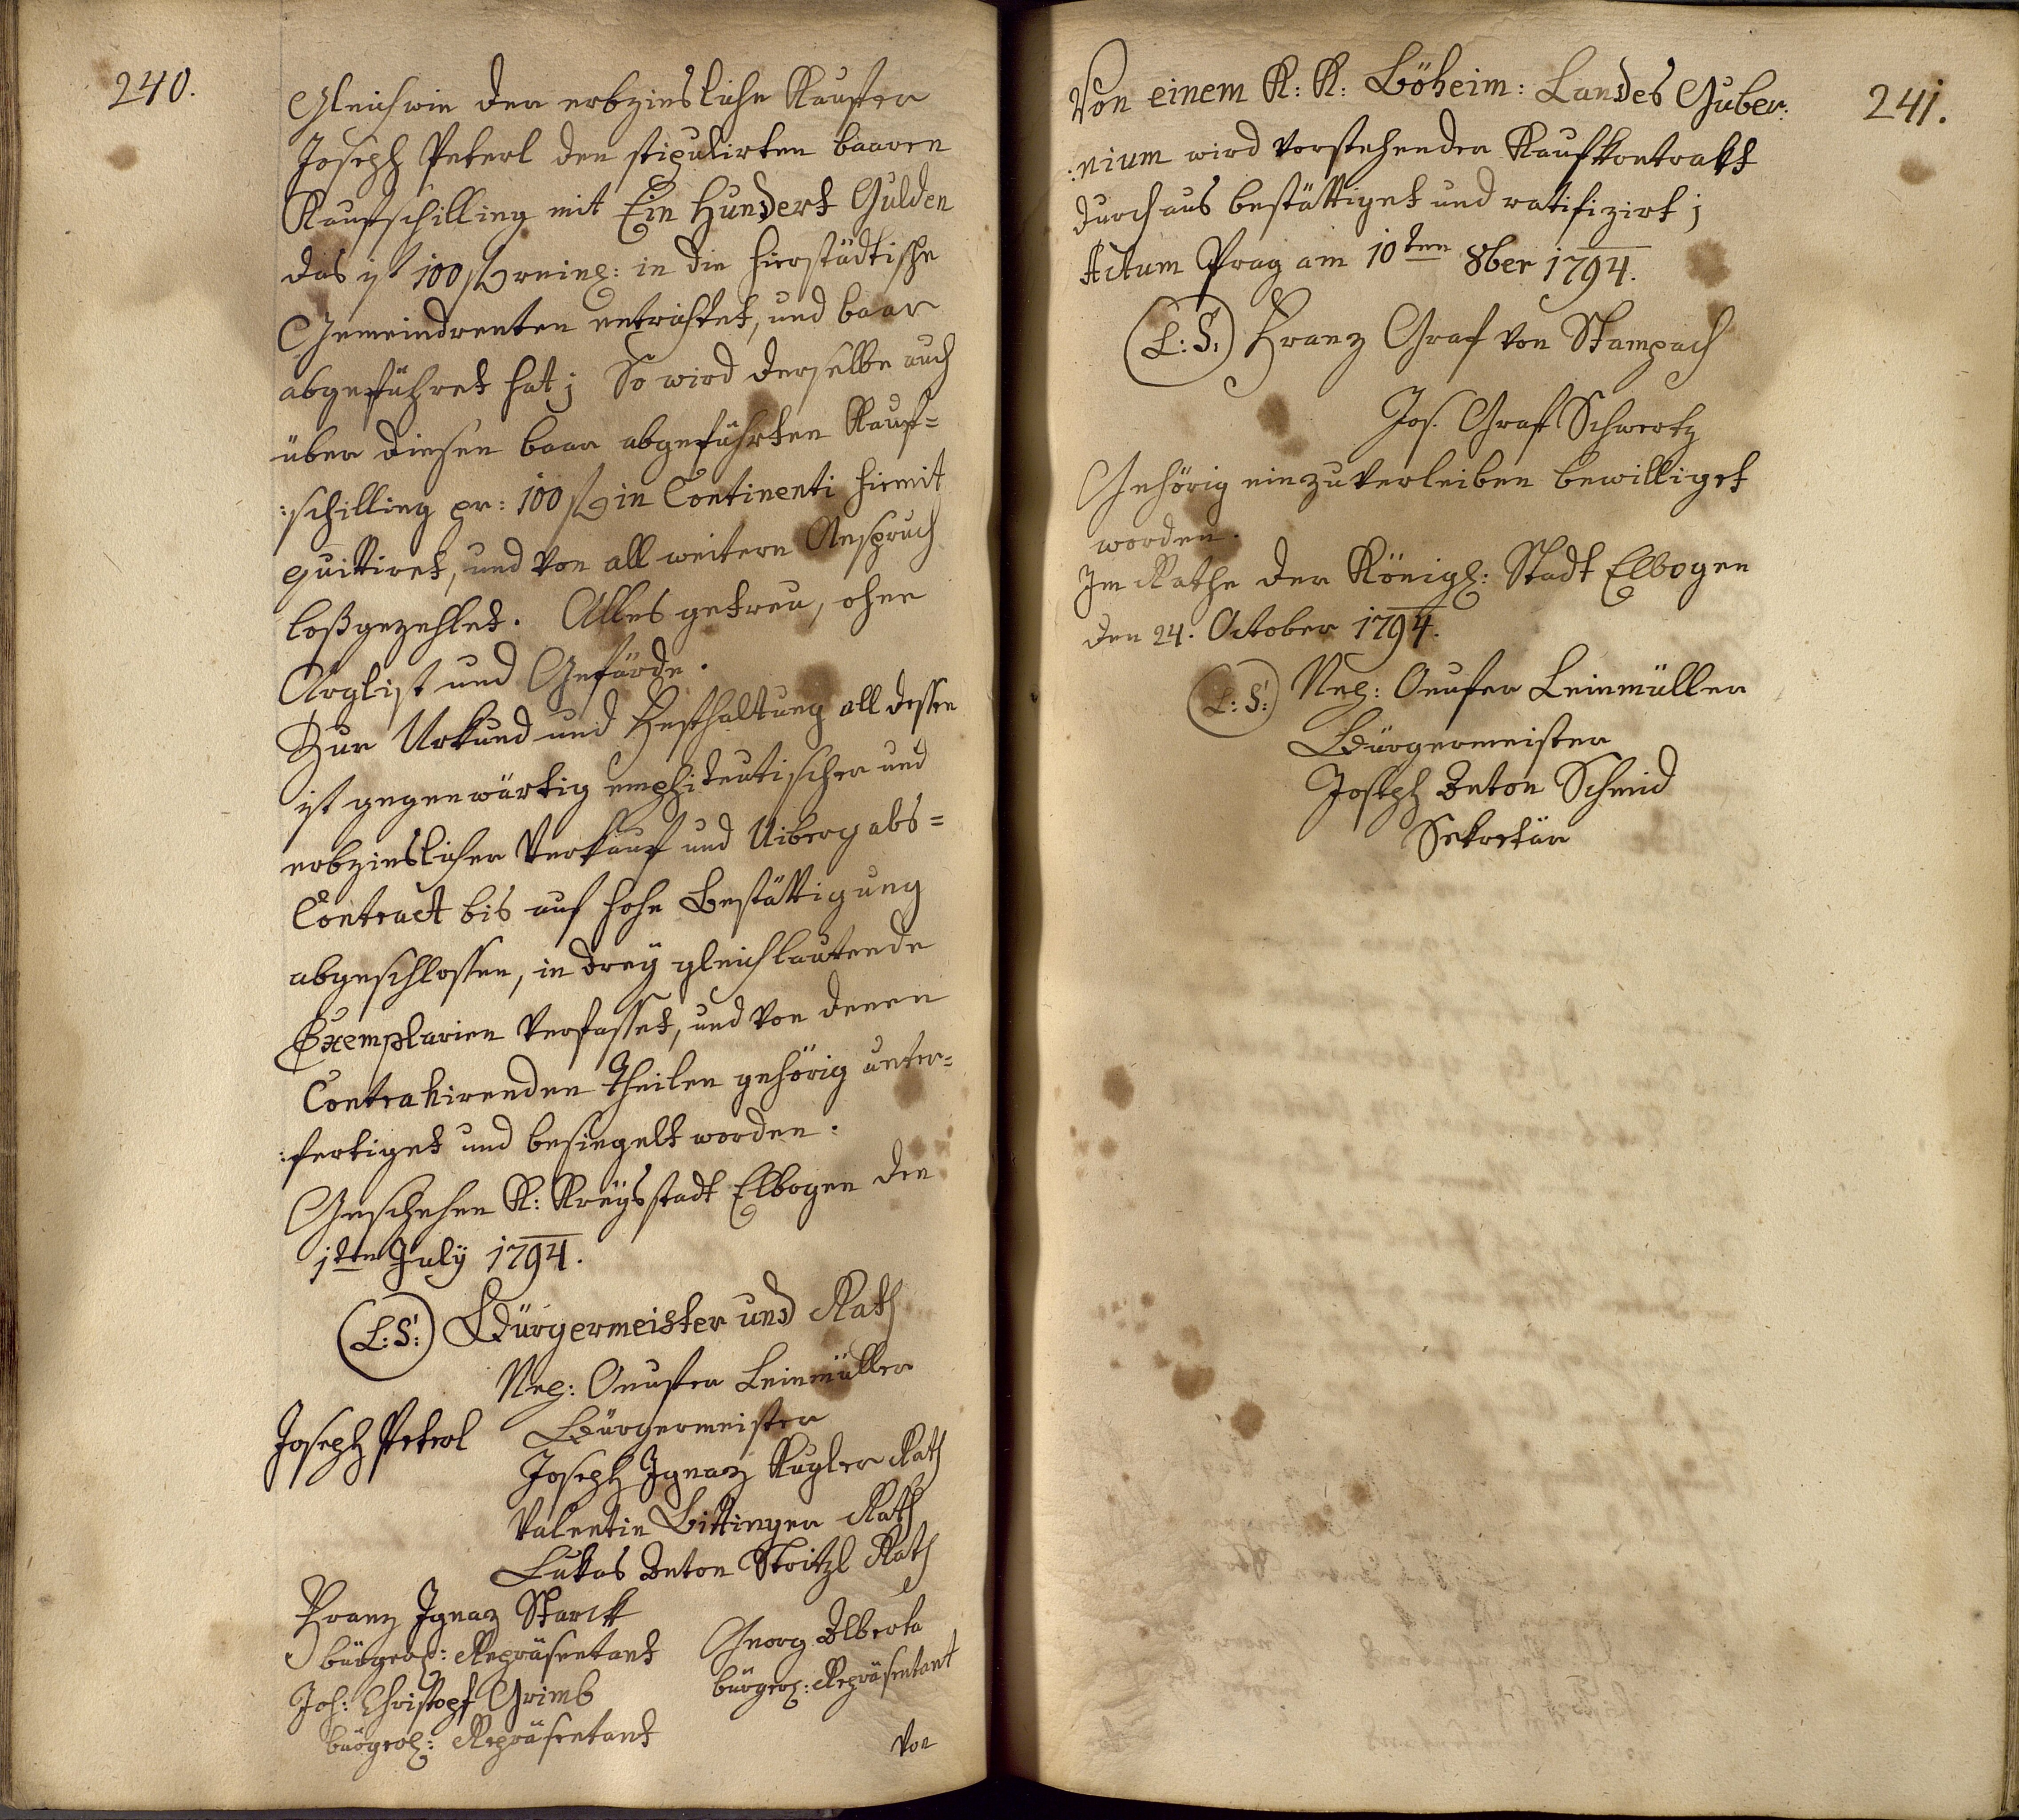 240.
Gleichwie der erbzinsliche Kaufer
Joseph Peterl den stipulirten baaren
Kaufschilling mit Ein Hundert Gulden
das ist 100 f reinl: in die hierstädtische
Gemeindrenten entrichtet, und baar
abgeführet hat; So wird derselbe auch
über diesen baar abgeführten Kauf=
:schilling pr: 100 f in Continenti hiemit
quittiret, und von all weitern Anspruch
loßgezehlet. Alles getreu, ohne
Arglist und Gefärde.
Zur Urkund und Festhaltung all dessen
ist gegenwärtig emphiteutischer und
erbzinslicher Verkauf und Uibergabs=
Contract bis auf hohe Bestättigung
abgeschlossen, in drey gleichlautende
Exemplarien verfasset, und von denen
Contrahirenden Theilen gehörig unter=
:fertiget und besiegelt worden.
Geschehen K: Kreysstadt Elbogen den
1ten July 1794.
(L:S:) Bürgermeister und Rath
Leinmüller
Joseph Peterl Bürgermeister
Joseph Ignaz Kugler Rath
Valentin Bittinger Rath
Lukas Anton Stoitzl Rath
Franz Ignaz Starck
bürgerl: Repräsentant Georg Alberta
Joh: Christoph Grimb bürgerl: Repräsentant
bürgerl: Repräsentant
Von
241.
Von einem K: K: Böheim: Landes Guber:
:nium wird vorstehender Kaufkontrakt
durchaus bestättiget und ratifizirt;
Actum Prag am 10ten 8ber 1794.
(L:S:) Franz Graf von Stampach
Jos. Graf Schwertz
Gehörig einzuverleiben bewilliget
worden.
Im Rathe der Königl: Stadt Elbogen
den 24. October 1794.
(L:S:) Leinmüller
Bürgermeister
Joseph Anton Schmid
Sekretär